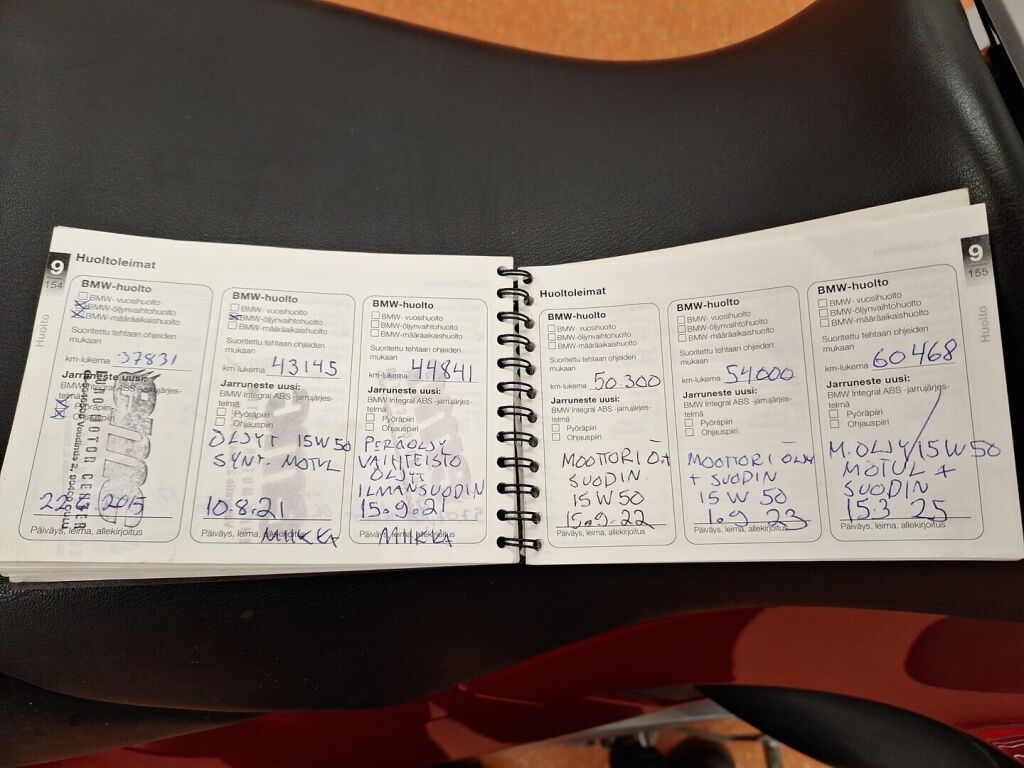 Huoltoleimat
9
154
Huolto
BMW-huolto
BMW- vuosihuolto
BMW-öljynvaihtohuolto
BMW-määräaikaishuolto
Suoritettu tehtaan ohjeiden
mukaan
km-lukema 37831
Jarruneste uusi:
BMW Integral ABS -jarrujärjes-
telmä
Pyöräpiiri
Ohjauspiiri
MOTOR CENTER
2015
Päiväys, leima, allekirjoitus
BMW-huolto
BMW- vuosihuolto
BMW-öljynvaihtohuolto
BMW-määräaikaishuolto
Suoritettu tehtaan ohjeiden
mukaan
km-lukema 43145
Jarruneste uusi:
BMW Integral ABS -jarrujärjes-
telmä
Pyöräpiiri
Ohjauspiiri
ÖLJYT 15W50
SYNT. MOTUL
10.8.21
Päiväys, leima, allekirjoitus
MIIKKA
BMW-huolto
BMW- vuosihuolto
BMW-öljynvaihtohuolto
BMW-määräaikaishuolto
Suoritettu tehtaan ohjeiden
mukaan
km-lukema 44841
Jarruneste uusi:
BMW Integral ABS -jarrujärjes-
telmä
Pyöräpiiri
Ohjauspiiri
PERÄÖLJY
VAIHTEISTO
ÖLJY
ILMANSUODIN
15.9.21
Päiväys, leima, allekirjoitus
MIIKKA
Huoltoleimat
9
155
Huolto
BMW-huolto
BMW- vuosihuolto
BMW-öljynvaihtohuolto
BMW-määräaikaishuolto
Suoritettu tehtaan ohjeiden
mukaan
km-lukema 50.300
Jarruneste uusi:
BMW Integral ABS -jarrujärjes-
telmä
Pyöräpiiri
Ohjauspiiri
MOOTTORI Ö.+
SUODIN
15W50
15.9.22
Päiväys, leima, allekirjoitus
BMW-huolto
BMW- vuosihuolto
BMW-öljynvaihtohuolto
BMW-määräaikaishuolto
Suoritettu tehtaan ohjeiden
mukaan
km-lukema 54000
Jarruneste uusi:
BMW Integral ABS -jarrujärjes-
telmä
Pyöräpiiri
Ohjauspiiri
MOOTTORI ÖLJY
+ SUODIN
15W 50
1.9.23
Päiväys, leima, allekirjoitus
BMW-huolto
BMW- vuosihuolto
BMW-öljynvaihtohuolto
BMW-määräaikaishuolto
Suoritettu tehtaan ohjeiden
mukaan
km-lukema 60468
Jarruneste uusi:
BMW Integral ABS -jarrujärjes-
telmä
Pyöräpiiri
Ohjauspiiri
M.ÖLJY/15W50
MOTUL +
SUODIN
15.3 25
Päiväys, leima, allekirjoitus